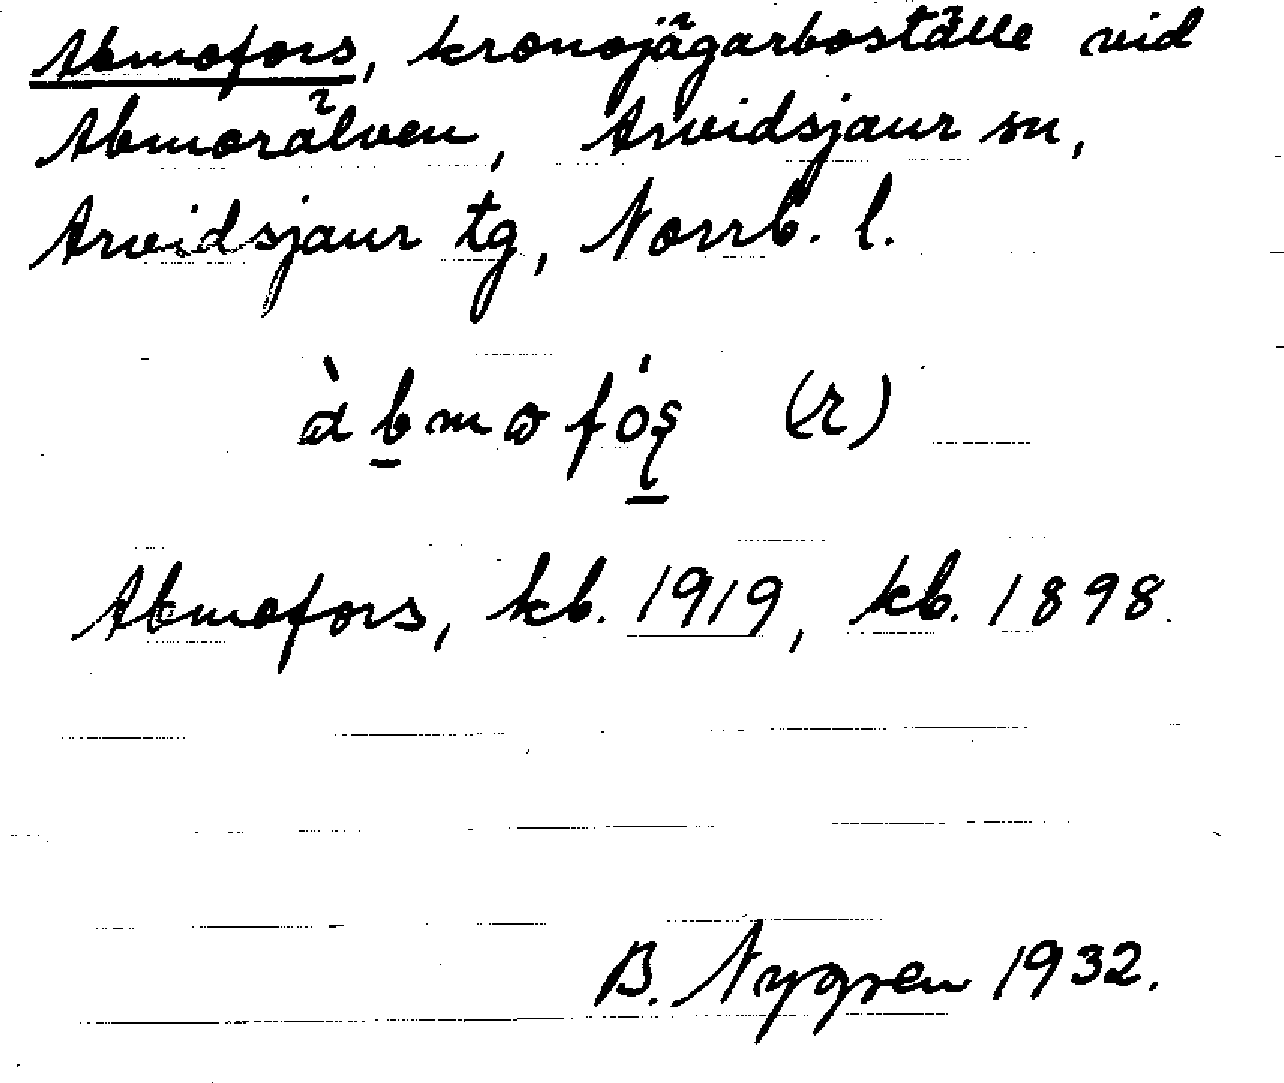 Abmofors, kronojägarboställe vid
Abmorälven, Arvidsjaur sn,
Arvidsjaur tg, Norrb. l.
(r)
Abmofors, kb. 1919, kb. 1898.
B. Nygren 1932.